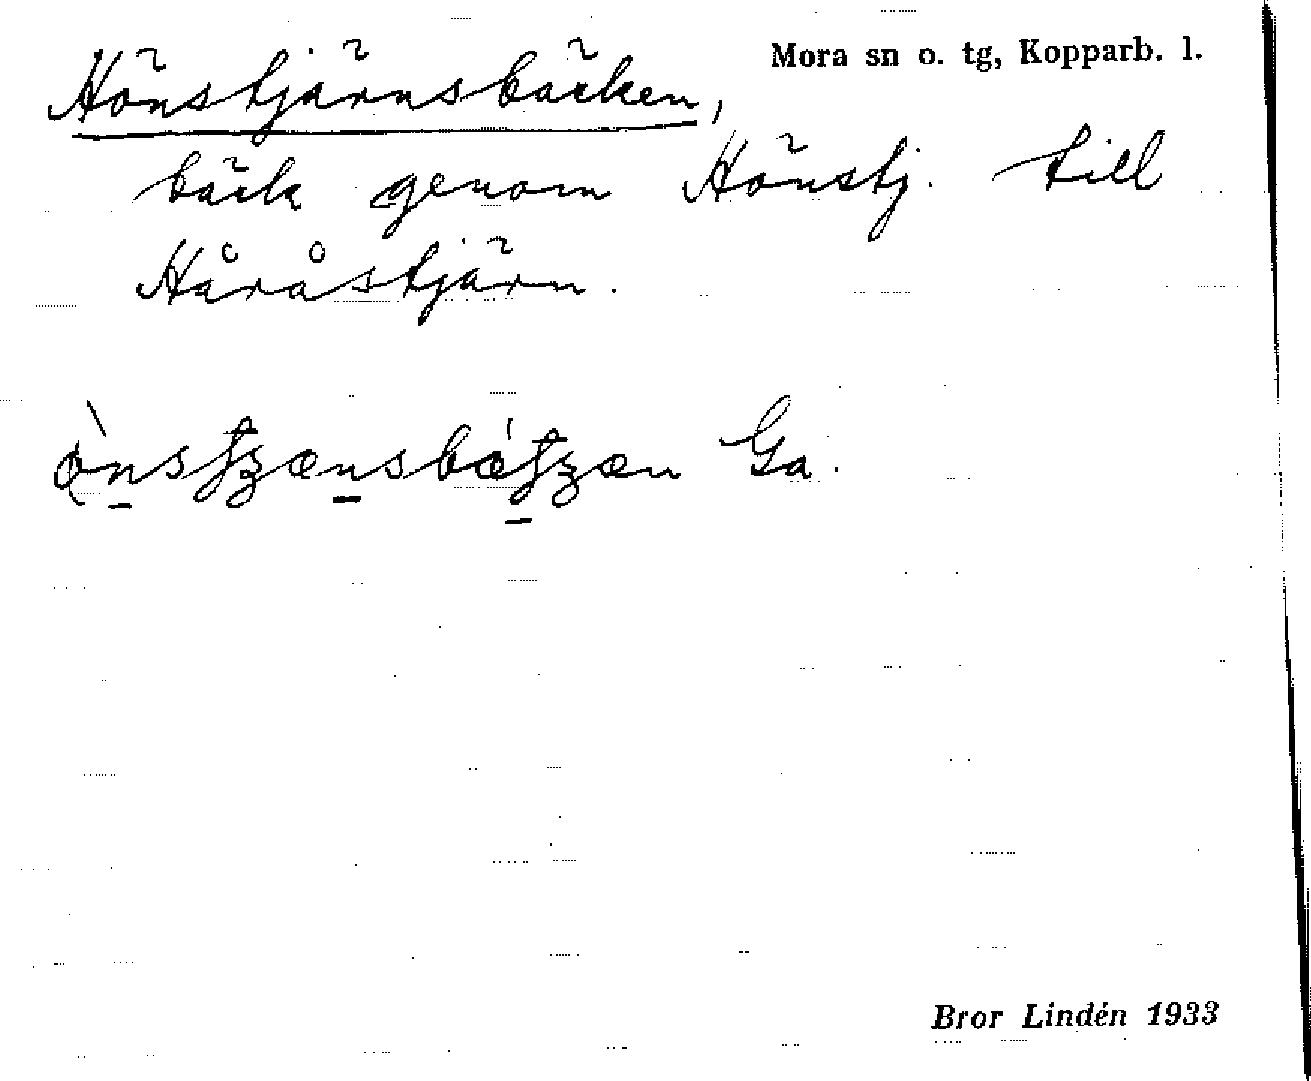 Hönstjärnsbäcken, Mora sn o. tg, Kopparb. l.
bäck genom Hönstj. till
Håråstjärn.
Ga.
Bror Lindén 1933